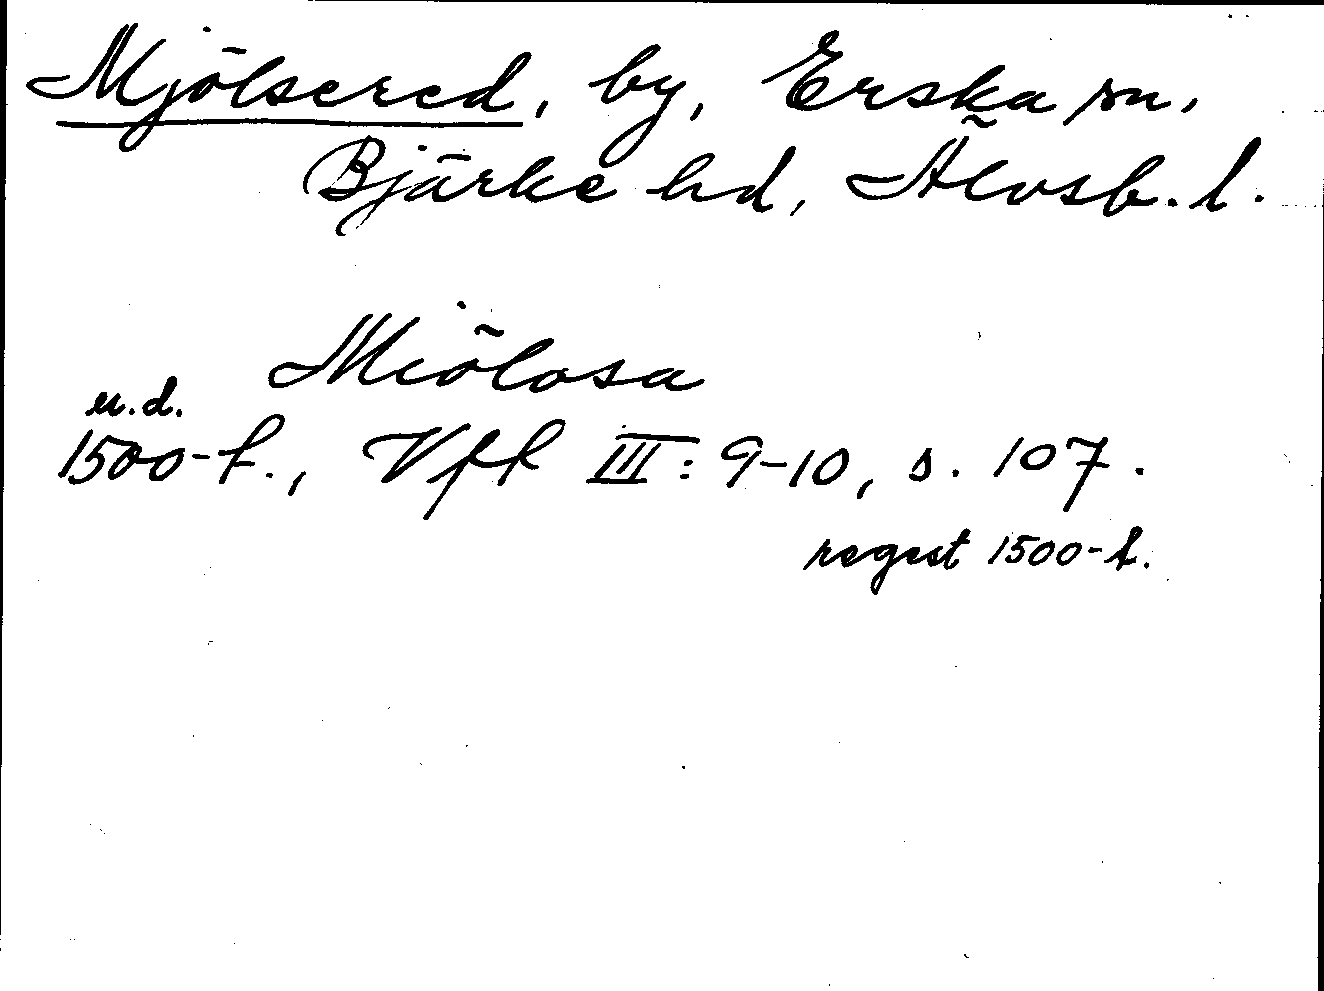 Mjölsered, by, Erska sn.
Bjärke hd, Älvsb. l.
Miölosa
u.d.
1500-t., Vfl III: 9-10, s. 107.
regest 1500-t.